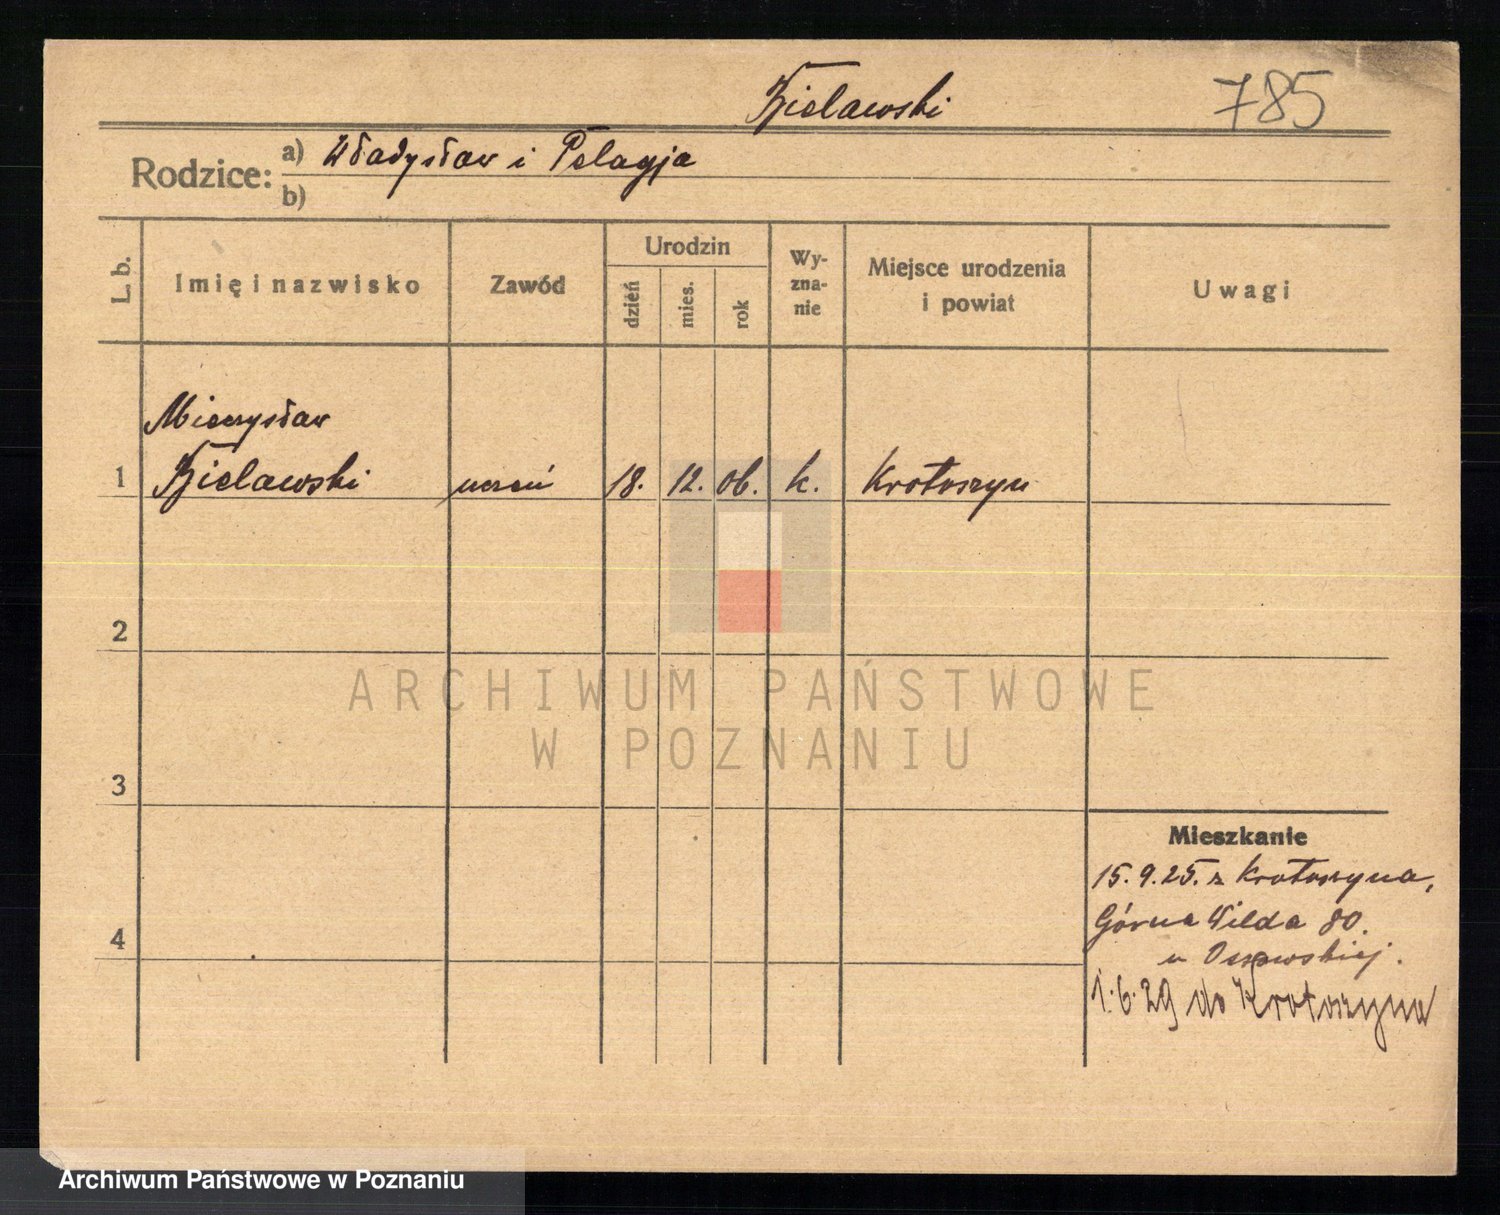 Bielawski 785
Rodzice: a) Władysław i Pelagja
b)
L. b. Imię i nazwisko Zawód Urodzin Wy-zna-nie Miejsce urodzenia i powiat Uwagi
dzień mies. rok
Mieczysław
1 Bielawski uczeń 18. 12. 06. k. Krotoszyn
2
3
4
Mieszkanie
15.9.25. z Krotoszyna,
Górna Wilda 80.
u Ossowskiej.
1.6.29 do Krotoszyna
ARCHIWUM PAŃSTWOWE
W POZNANIU
Archiwum Państwowe w Poznaniu